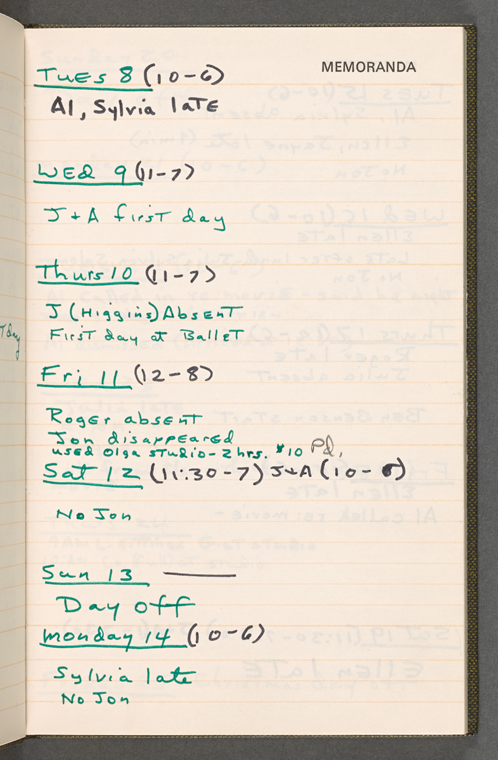 MEMORANDA
Tues 8 (10-6)
Al, Sylvia late
Wed 9 (11-7)
J + A first day
Thurs 10 (11-7)
J (Higgins) Absent
First day at Ballet
Fri 11 (12-8)
Roger absent
Jon disappeared
used Olga studio - 2 hrs. $10 Pd.
Sat 12 (11:30-7) J+A (10-6)
No Jon
Sun 13 —
Day off
Monday 14 (10-6)
Sylvia late
No Jon